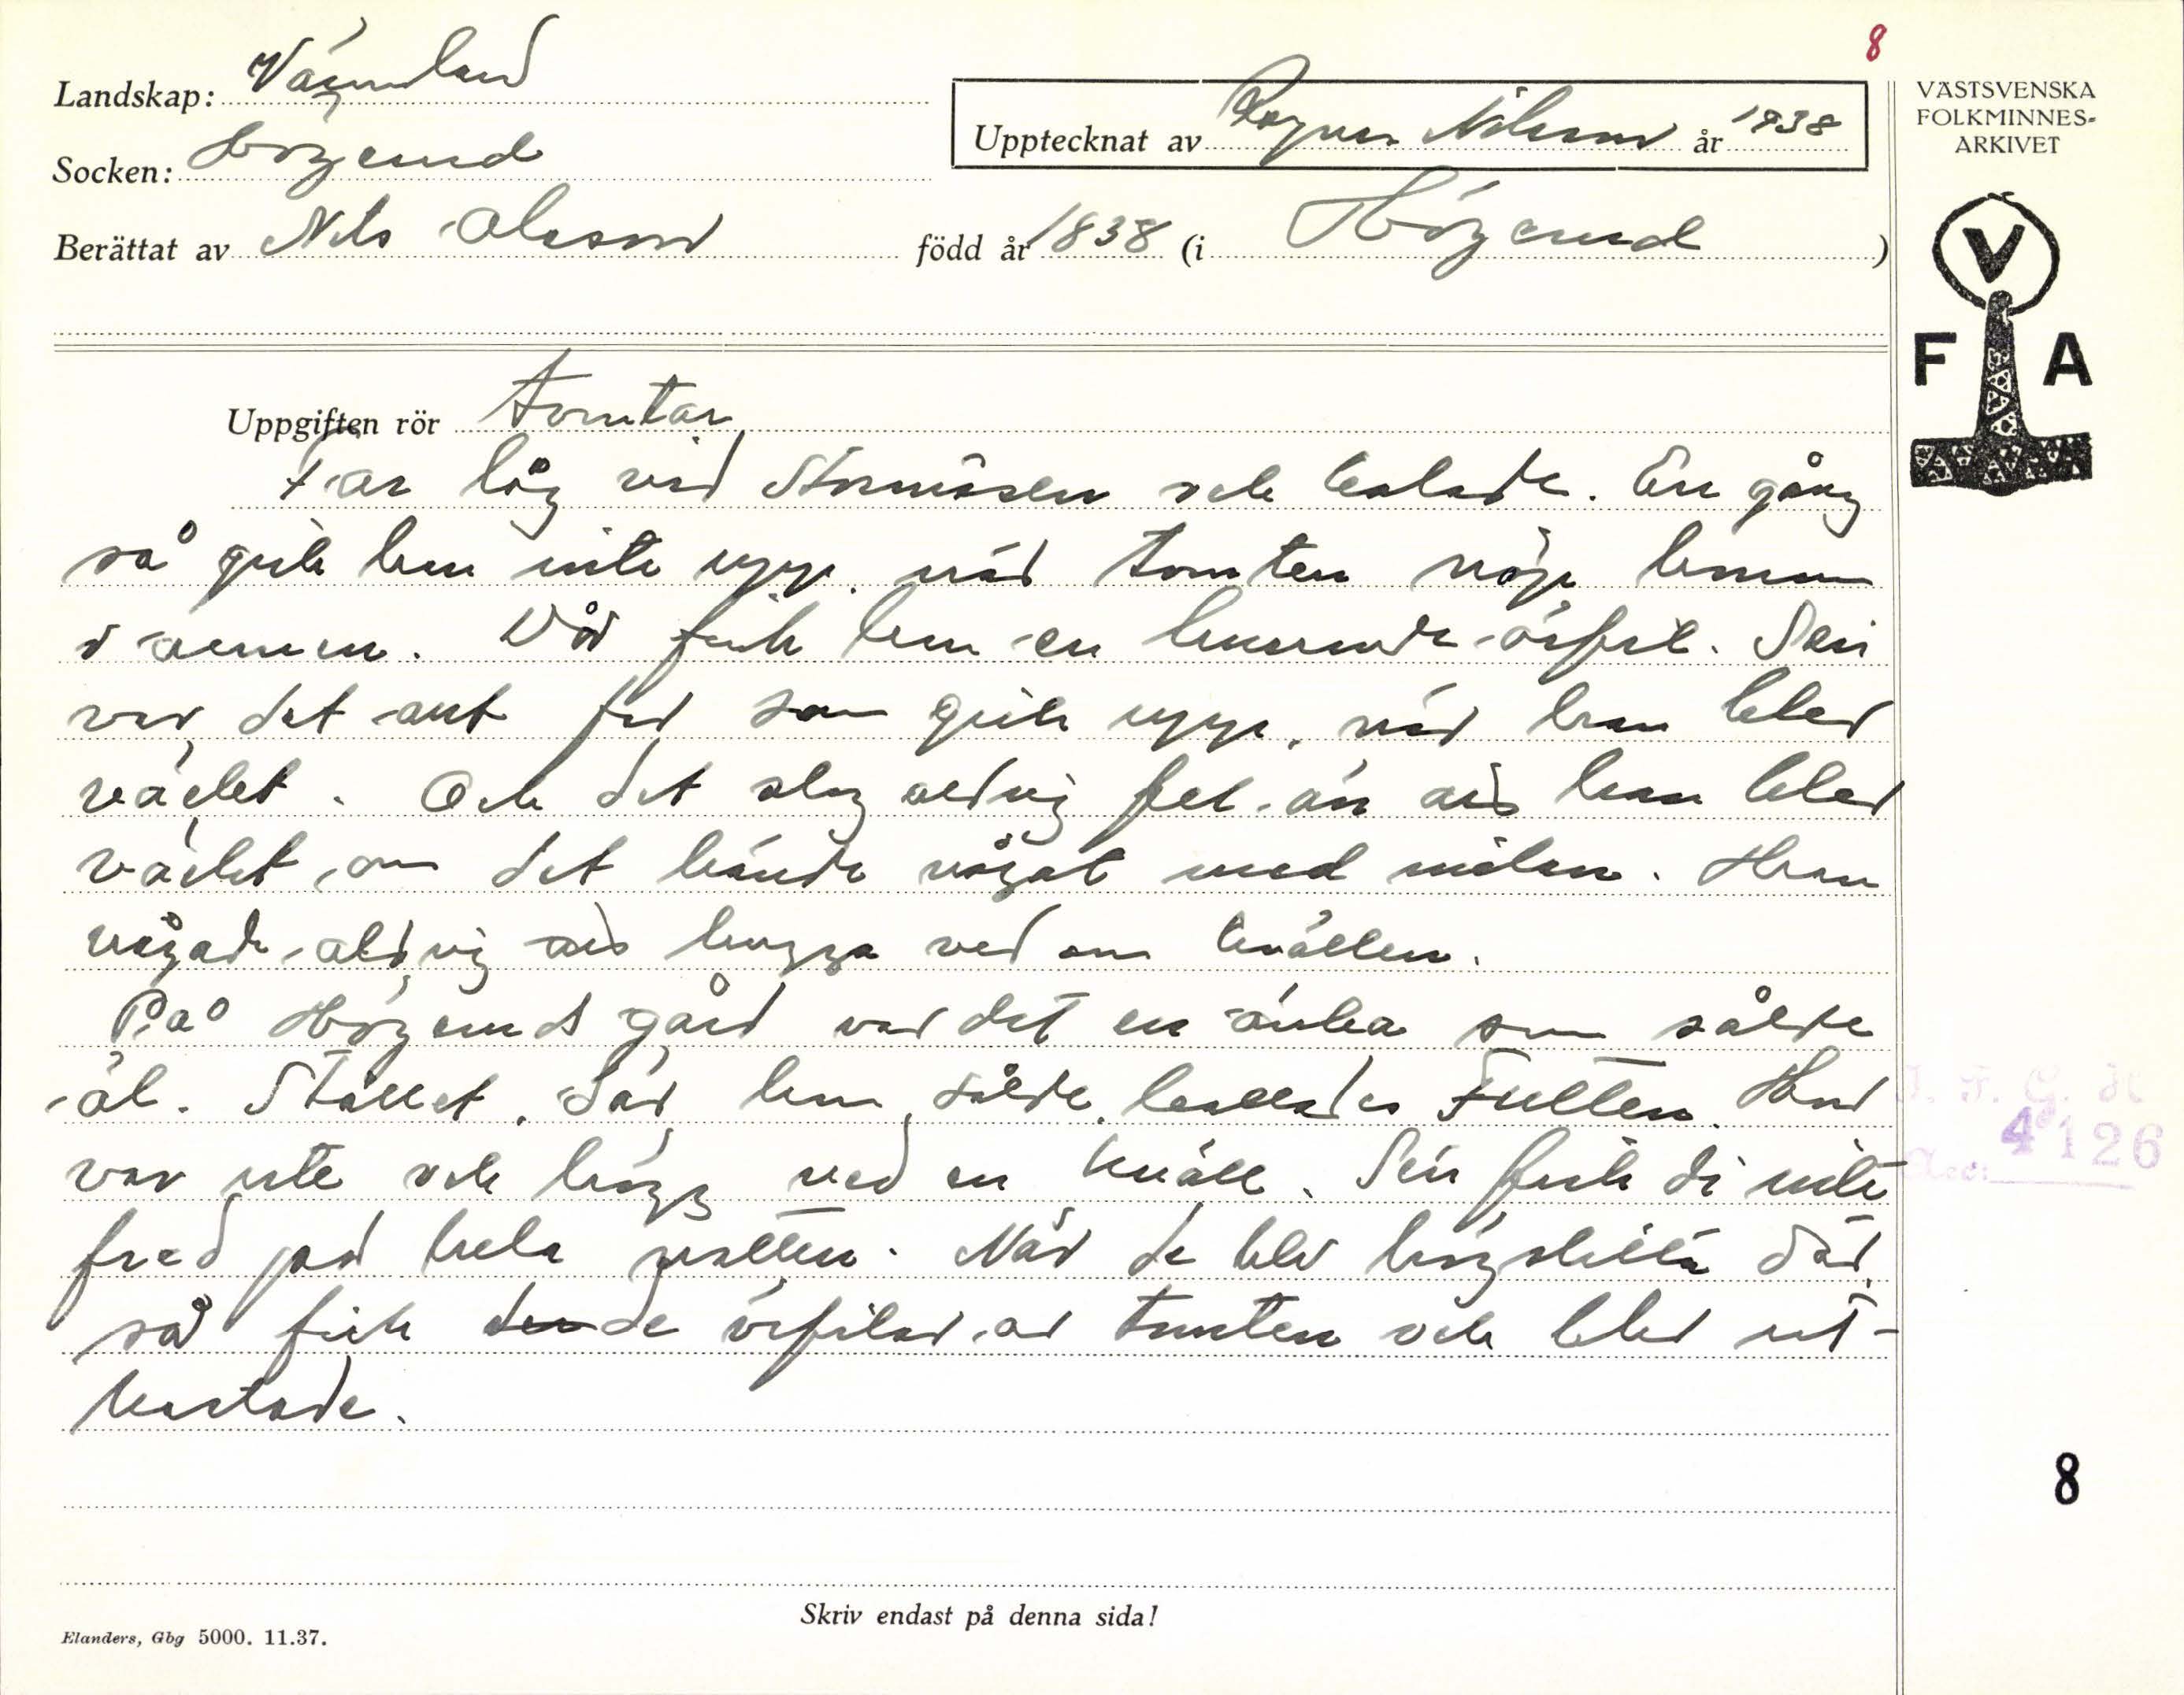 8
Landskap: Värmland
Upptecknat av Ragnar Nilsson år 1938
VÄSTSVENSKA
FOLKMINNES-
ARKIVET
Socken: Högerud
Berättat av Nils Olsson född år 1838 (i Högerud)
V
F A
Uppgiften rör Tomtar
Far låg vid Stormåsen och kolade. En gång
så gick han inte upp, när tomten nöp honom
i armen. Då fick han en brinnande örfil. Sen
var det ant far som gick upp, när han blev
väckt. Och det slog aldrig fel än att han blev
väckt, om det hände något med milan. Han
vågade aldrig att hugga ved om kvällen.
På Högeruds gård var det en änka som sålde
öl. Stället, där hon sålde, kallades Fullen. Hon
var ute och högg ved en kväll. Sen fick di inte
fred på hela natten. När de blev högljudda där,
så fick de örfilar av tomten och blev ut-
kastade.
4126
8
Skriv endast på denna sida!
Elanders, Gbg 5000. 11.37.